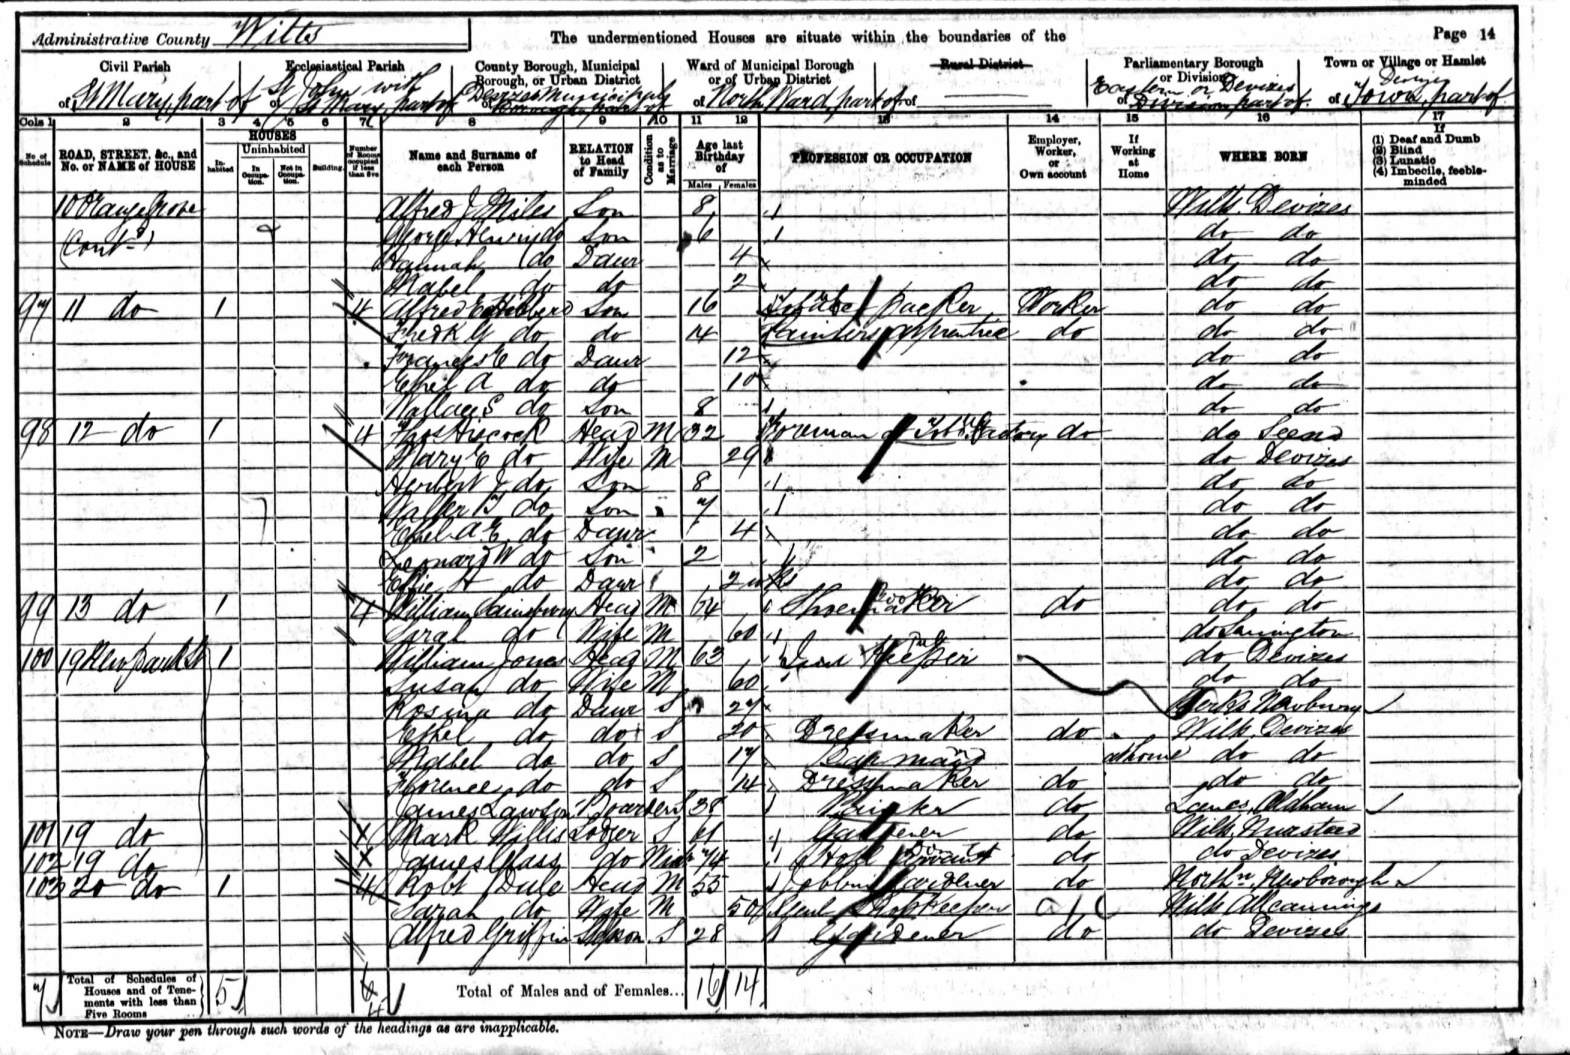 Administrative County Wilts
The undermentioned Houses are situate within the boundaries of the
Page 14
Civil Parish
of St Mary part of
Ecclesiastical Parish
of St John with St Mary part of
County Borough, Municipal Borough, or Urban District
of Devizes Municipal Borough part of
Ward of Municipal Borough or of Urban District
of North Ward part of
Rural District
of
Parliamentary Borough or Division
of Eastern or Devizes Division part of
Town or Village or Hamlet
of Devizes Town, part of
Cols 1 2 3 4 5 6 7 8 9 10 11 12 13 14 15 16 17
No. of Schedule
ROAD, STREET, &c., and No. or NAME of HOUSE
HOUSES
Inhabited
Uninhabited
In Occupation.
Not in Occupation.
Building.
Number of Rooms occupied if less than five
Name and Surname of each Person
RELATION to Head of Family
Condition as to Marriage
Age last Birthday of
Males Females
PROFESSION OR OCCUPATION
Employer, Worker, or Own account
If Working at Home
WHERE BORN
If
(1) Deaf and Dumb
(2) Blind
(3) Lunatic
(4) Imbecile, feeble-minded
10 Grove Alfred J Miles Son 8 Wilts Devizes
(Contd) George Henry do Son 6 do do
Hannah do Daur 4 do do
Mabel do do 2 do do
97 11 do 1 4 Alfred E Hibberd Son 16 Tobacco packer Worker do do
Fredk G do do 14 Painters apprentice do do do
Frances E do Daur 12 do do
Ethel A do do 10 do do
Wallace S do Son 8 do do
98 12 do 1 4 Thos Hiscock Head M 32 Foreman Tob Factory do do Seend
Mary E do Wife M 29 do Devizes
Herbert J do Son 8 do do
Walter do Son 7 do do
Ethel A. E. do Daur 4 do do
Leonard W do Son 2 do do
Effie H do Daur 2 wks do do
99 13 do 1 4 William Sainsbury Head M 64 Shoemaker do do do
Sarah do Wife M 60 do
100 19 New park St 1 William Jones Head M 63 Inn Keeper do Devizes
Susan do Wife M 60 do do
Rosina do Daur S 27 Berks Newbury
Ethel do do S 20 Dressmaker do Wilts Devizes
Mabel do do S 17 Barmaid at home do do
Florence do do S 14 Dressmaker do do do
James Lawson Boarder S 38 do Lancs, Oldham
101 19 do Mark Willis Lodger S 61 Gardener do Wilts
102 19 do James Glass do Widr 74 do do Devizes
103 20 do 1 4 Robt Dale Head M 55 Jobbing Gardener do Northn
Sarah do Wife M 50 Genl Shopkeeper Wilts Allcannings
Alfred Griffin Stepson S 28 Gardener do do Devizes
7 Total of Schedules of Houses and of Tenements with less than Five Rooms 5
Total of Males and of Females... 16 14
NOTE—Draw your pen through such words of the headings as are inapplicable.